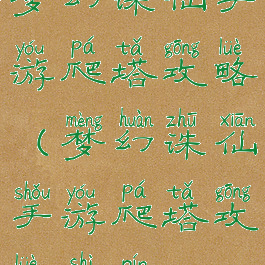 梦幻诛仙手
yóu pá tǎ gōng luè
游爬塔攻略
mèng huàn zhū xiān
（梦幻诛仙
shǒu yóu pá tǎ gōng
手游爬塔攻
luè shì pín